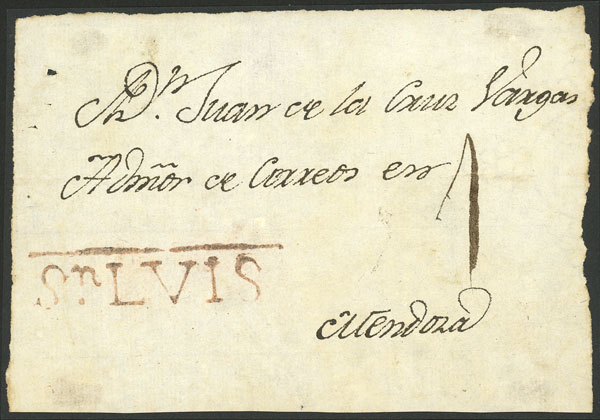 A Dn. Juan de la Cruz Vargas
Admõr de Correos en
1
Sn. LVIS
Mendoza